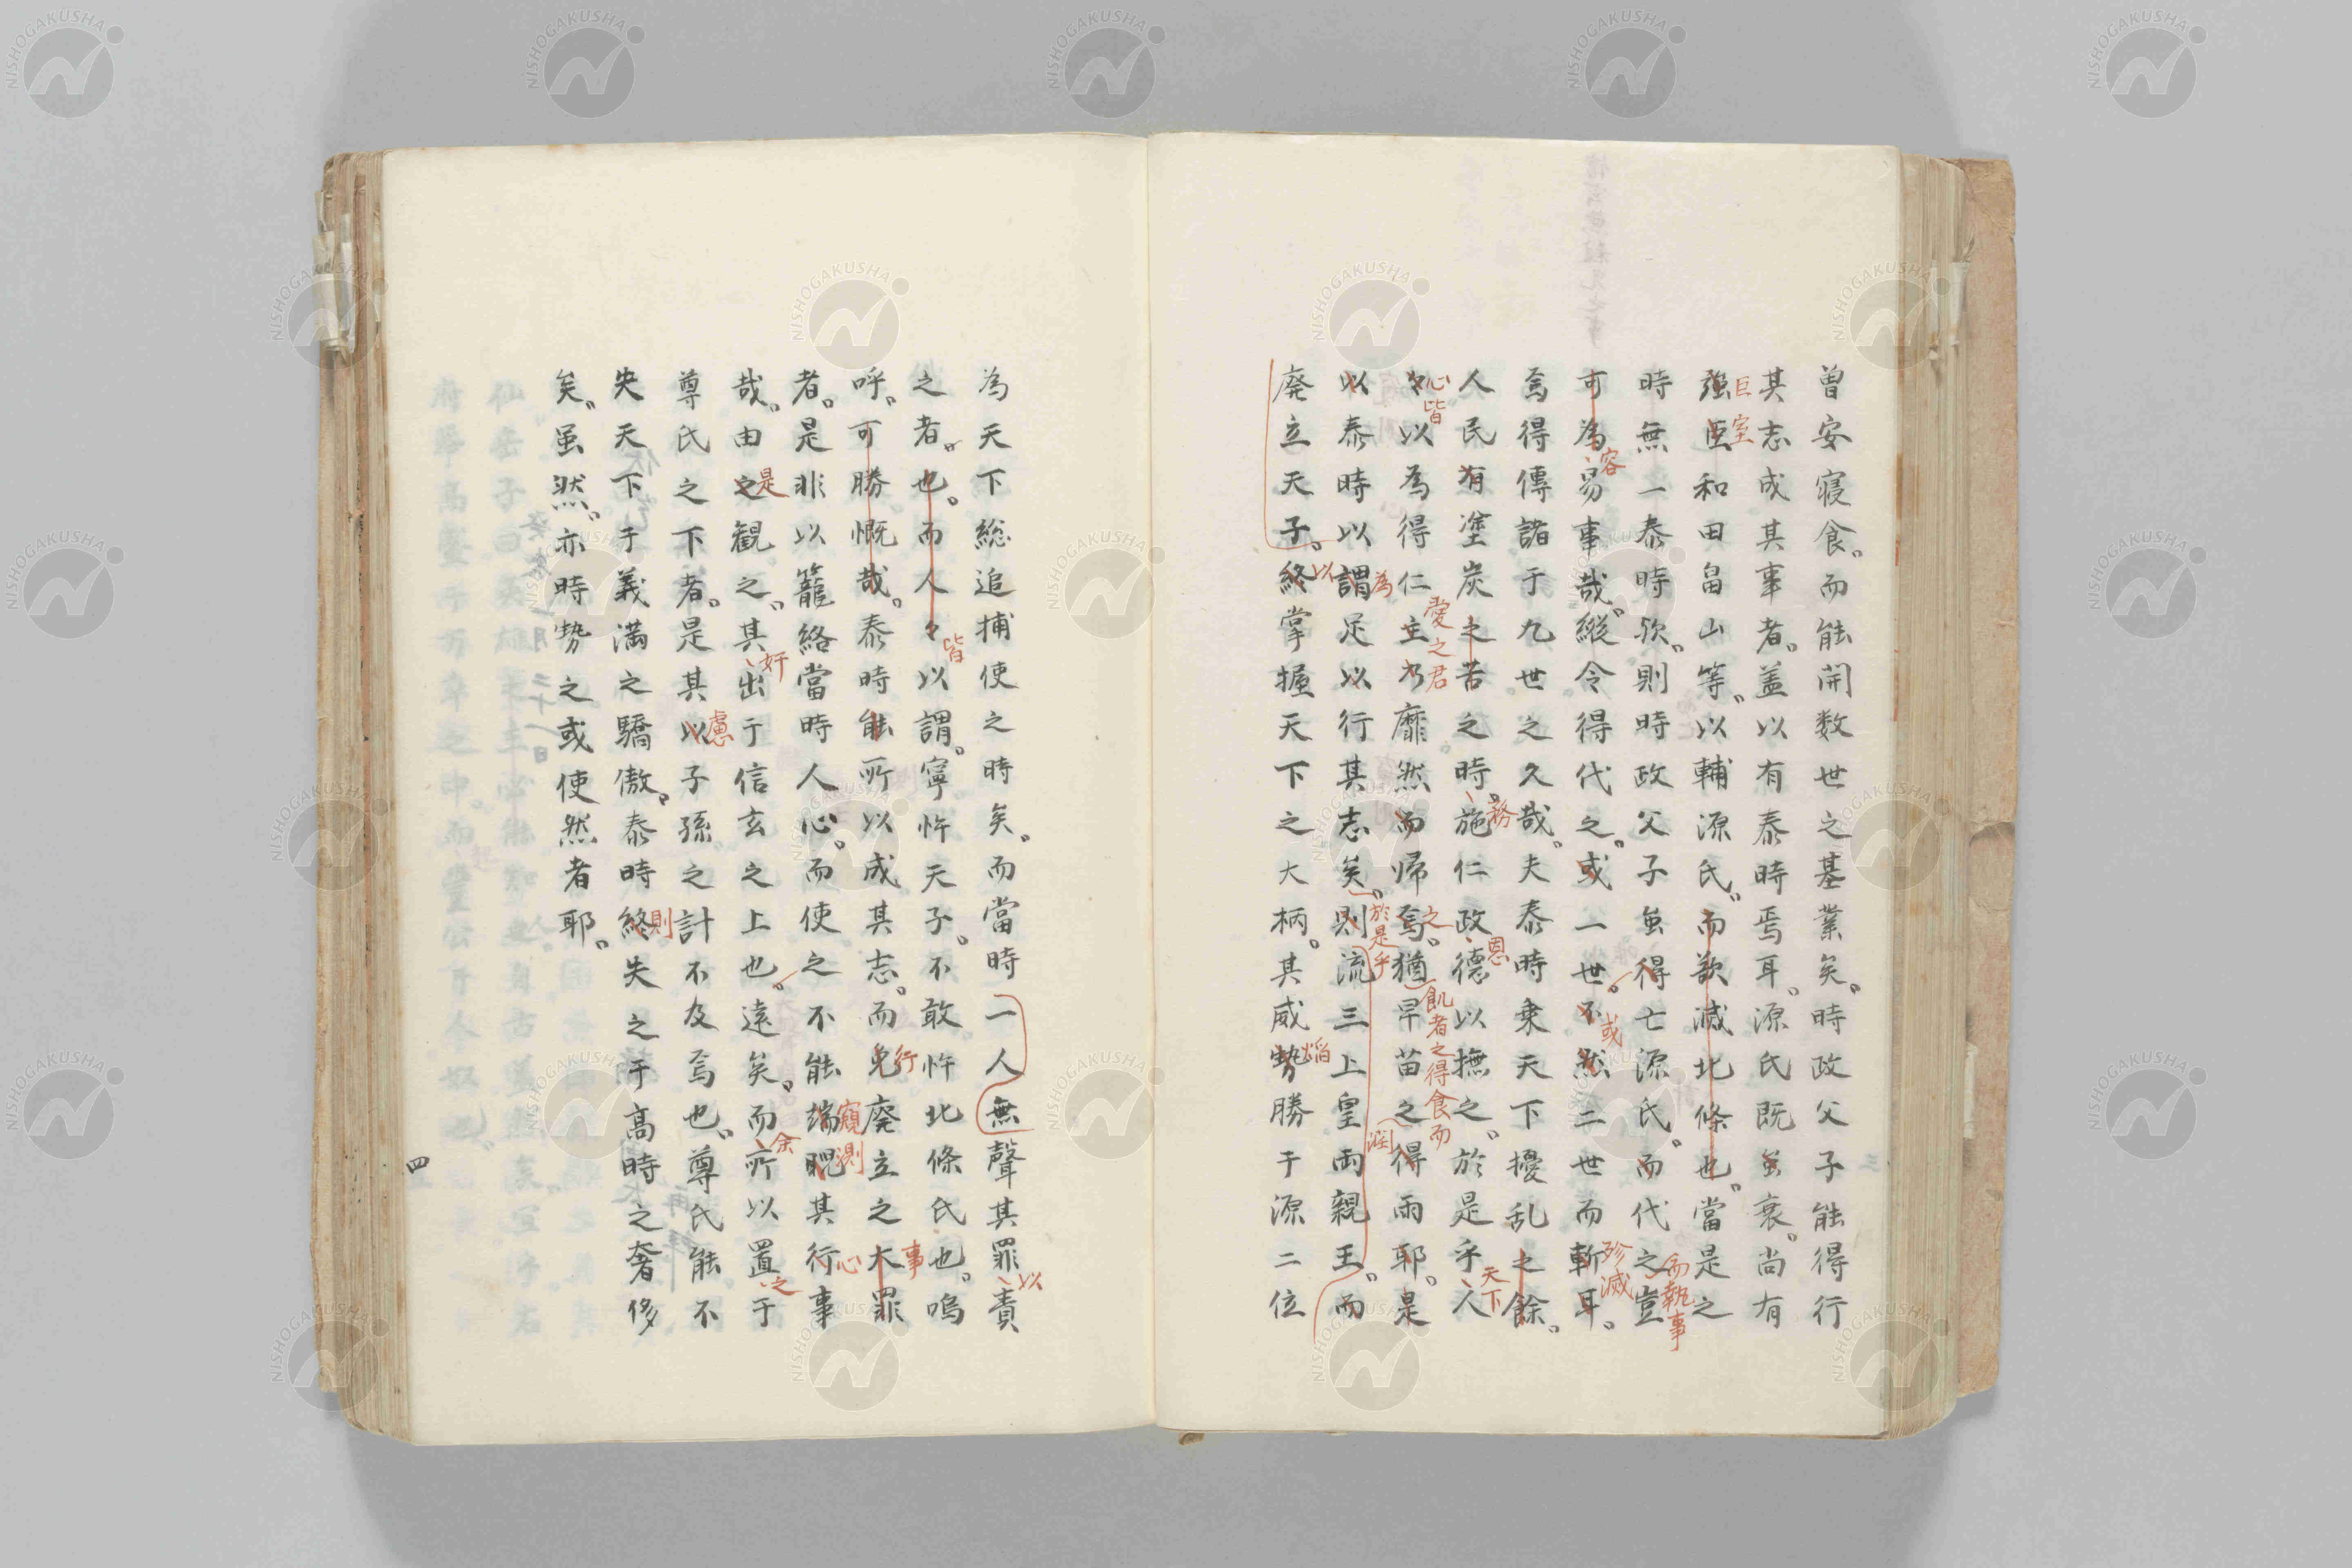 曽安寝食。而能開数世之基業矣。時政父子能得行
其志成其事者。盖以有泰時焉耳。源氏既虽衰。尚有
強臣和田畠山等。以輔源氏。而欲滅北條也。當是之
巨室
時無一泰時欤。則時政父子虽得亡源氏。而代之豈
而執事
可為易事哉。縦令得代之。或一世。不然二世而斬耳。
容
或
殄滅
焉得傳諸于九世之久哉。夫泰時乗天下擾乱之餘。
人民有塗炭之苦之時。施仁政德以撫之。於是乎人
務
恩
天下
々以為得仁主乃靡然而帰焉。猶旱苗之得雨耶。是
心皆
愛之君
之
飢者之得食而
以泰時以謂足以行其志矣。則流三上皇両親王。而
為
於是乎
潤
廃立天子。終掌握天下之大柄。其威勢勝于源二位
以
焰
為天下総追捕使之時矣。而當時一人無聲其罪責
以
之者。也。而人々以謂。寧忤天子。不敢忤北條氏也。嗚
皆
呼。可勝慨哉。泰時能所以成其志。而免廃立之大罪
行
事
者。是非以籠絡當時人心。而使之不能端睨其行事
窺測
心
哉。由之観之。其出于信玄之上也。遠矣。而所以置于
是
奸
余
之
尊氏之下者。是其以子孫之計不及焉也。尊氏能不
慮
失天下于義満之驕傲。泰時終失之于高時之奢侈
則
矣。虽然。亦時勢之或使然者耶。
四
NISHOGAKUSHA